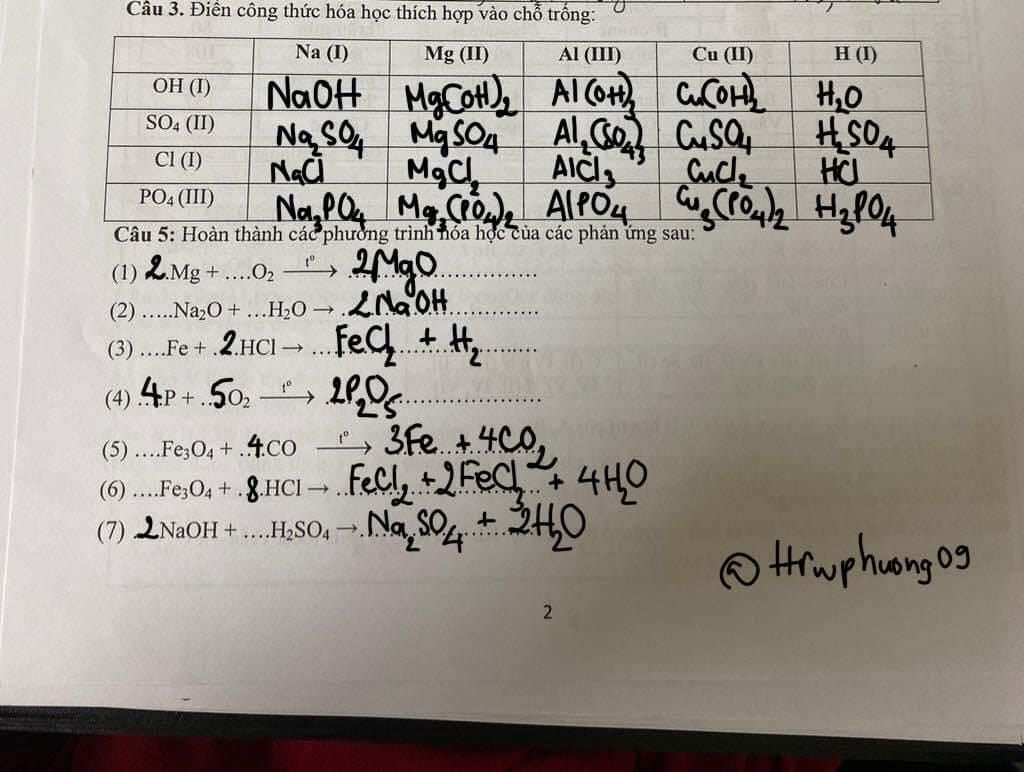 Câu 3. Điền công thức hóa học thích hợp vào chỗ trống:
Na (I) Mg (II) Al (III) Cu (II) H (I)
OH (I) NaOH Mg(OH)2 Al(OH)3 Cu(OH)2 H2O
SO4 (II) Na2SO4 MgSO4 Al2(SO4)3 CuSO4 H2SO4
Cl (I) NaCl MgCl2 AlCl3 CuCl2 HCl
PO4 (III) Na3PO4 Mg3(PO4)2 AlPO4 Cu3(PO4)2 H3PO4
Câu 5: Hoàn thành các phương trình hóa học của các phản ứng sau:
(1) 2.Mg + ....O2 t° → 2MgO
(2) .....Na2O + ...H2O → 2NaOH
(3) ....Fe + .2.HCl → FeCl2 + H2
(4) 4P + ..5O2 t° → 2P2O5
(5) ....Fe3O4 + ..4.CO t° → 3Fe + 4CO2
(6) ....Fe3O4 + .8.HCl → FeCl2 + 2FeCl3 + 4H2O
(7) 2NaOH + ....H2SO4 → Na2SO4 + 2H2O
@Htrwphuong09
2